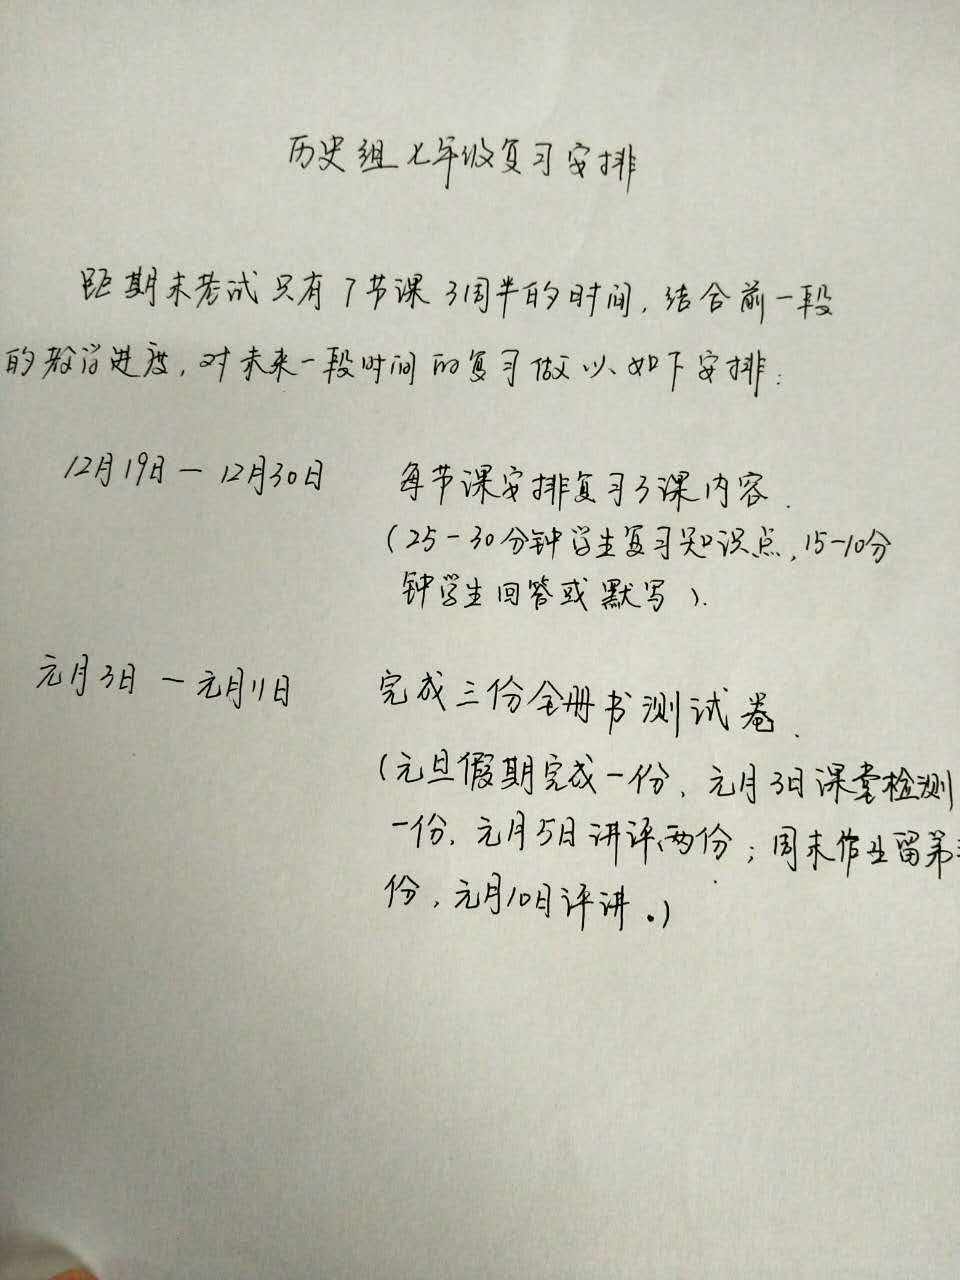 历史组七年级复习安排
距期末考试只有7节课3周半的时间,结合前一段
的教学进度,对未来一段时间的复习做以如下安排:
12月19日—12月30日 每节课安排复习3课内容.
(25-30分钟学生复习知识点,15-10分
钟学生回答或默写).
元月3日—元月11日 完成三份全册书测试卷.
(元旦假期完成一份,元月3日课堂检测
一份,元月5日讲评两份;周末作业留第
份,元月10日评讲.)